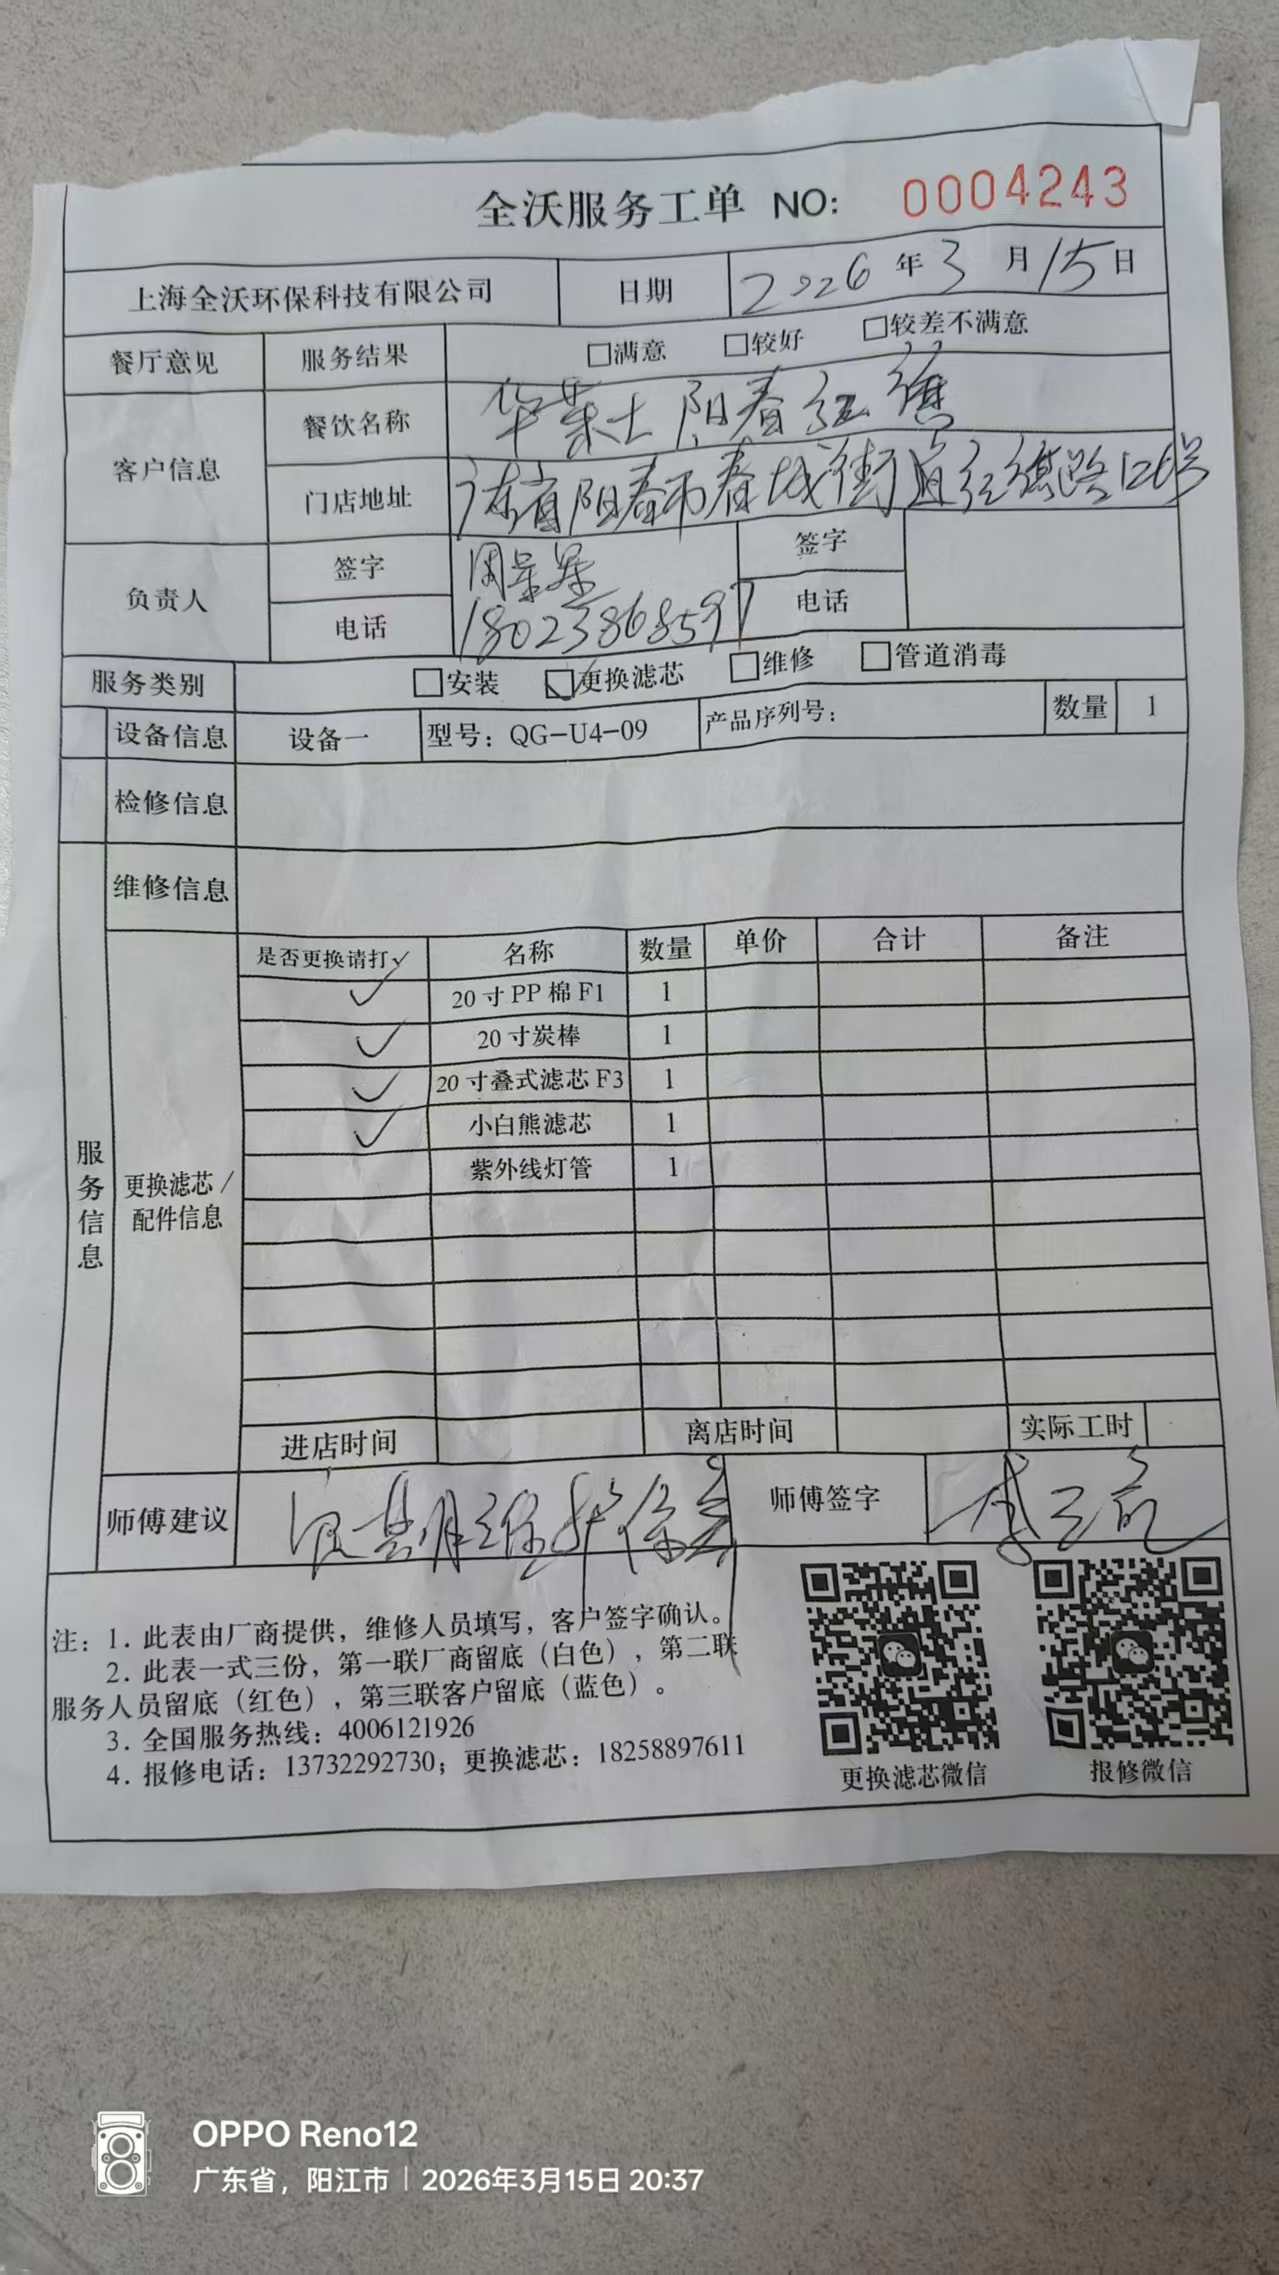 全沃服务工单 NO: 0004243
上海全沃环保科技有限公司 日期 2026年3月15日
餐厅意见 服务结果 □满意 □较好 □较差不满意
客户信息 餐饮名称 华莱士阳春红旗
门店地址 广东省阳春市春城街道红旗路
负责人 签字 周 签字
电话 18023868597 电话
服务类别 □安装 ☑更换滤芯 □维修 □管道消毒
设备信息 设备一 型号：QG-U4-09 产品序列号： 数量 1
检修信息
维修信息
服务信息
更换滤芯/
配件信息
是否更换请打✓ 名称 数量 单价 合计 备注
✓ 20寸PP棉F1 1
✓ 20寸炭棒 1
✓ 20寸叠式滤芯F3 1
✓ 小白熊滤芯 1
紫外线灯管 1
进店时间 离店时间 实际工时
师傅建议 定期维护保养 师傅签字 李
注：1. 此表由厂商提供，维修人员填写，客户签字确认。
2. 此表一式三份，第一联厂商留底（白色），第二联
服务人员留底（红色），第三联客户留底（蓝色）。
3. 全国服务热线：4006121926
4. 报修电话：13732292730；更换滤芯：18258897611
更换滤芯微信 报修微信
OPPO Reno12
广东省，阳江市 | 2026年3月15日 20:37